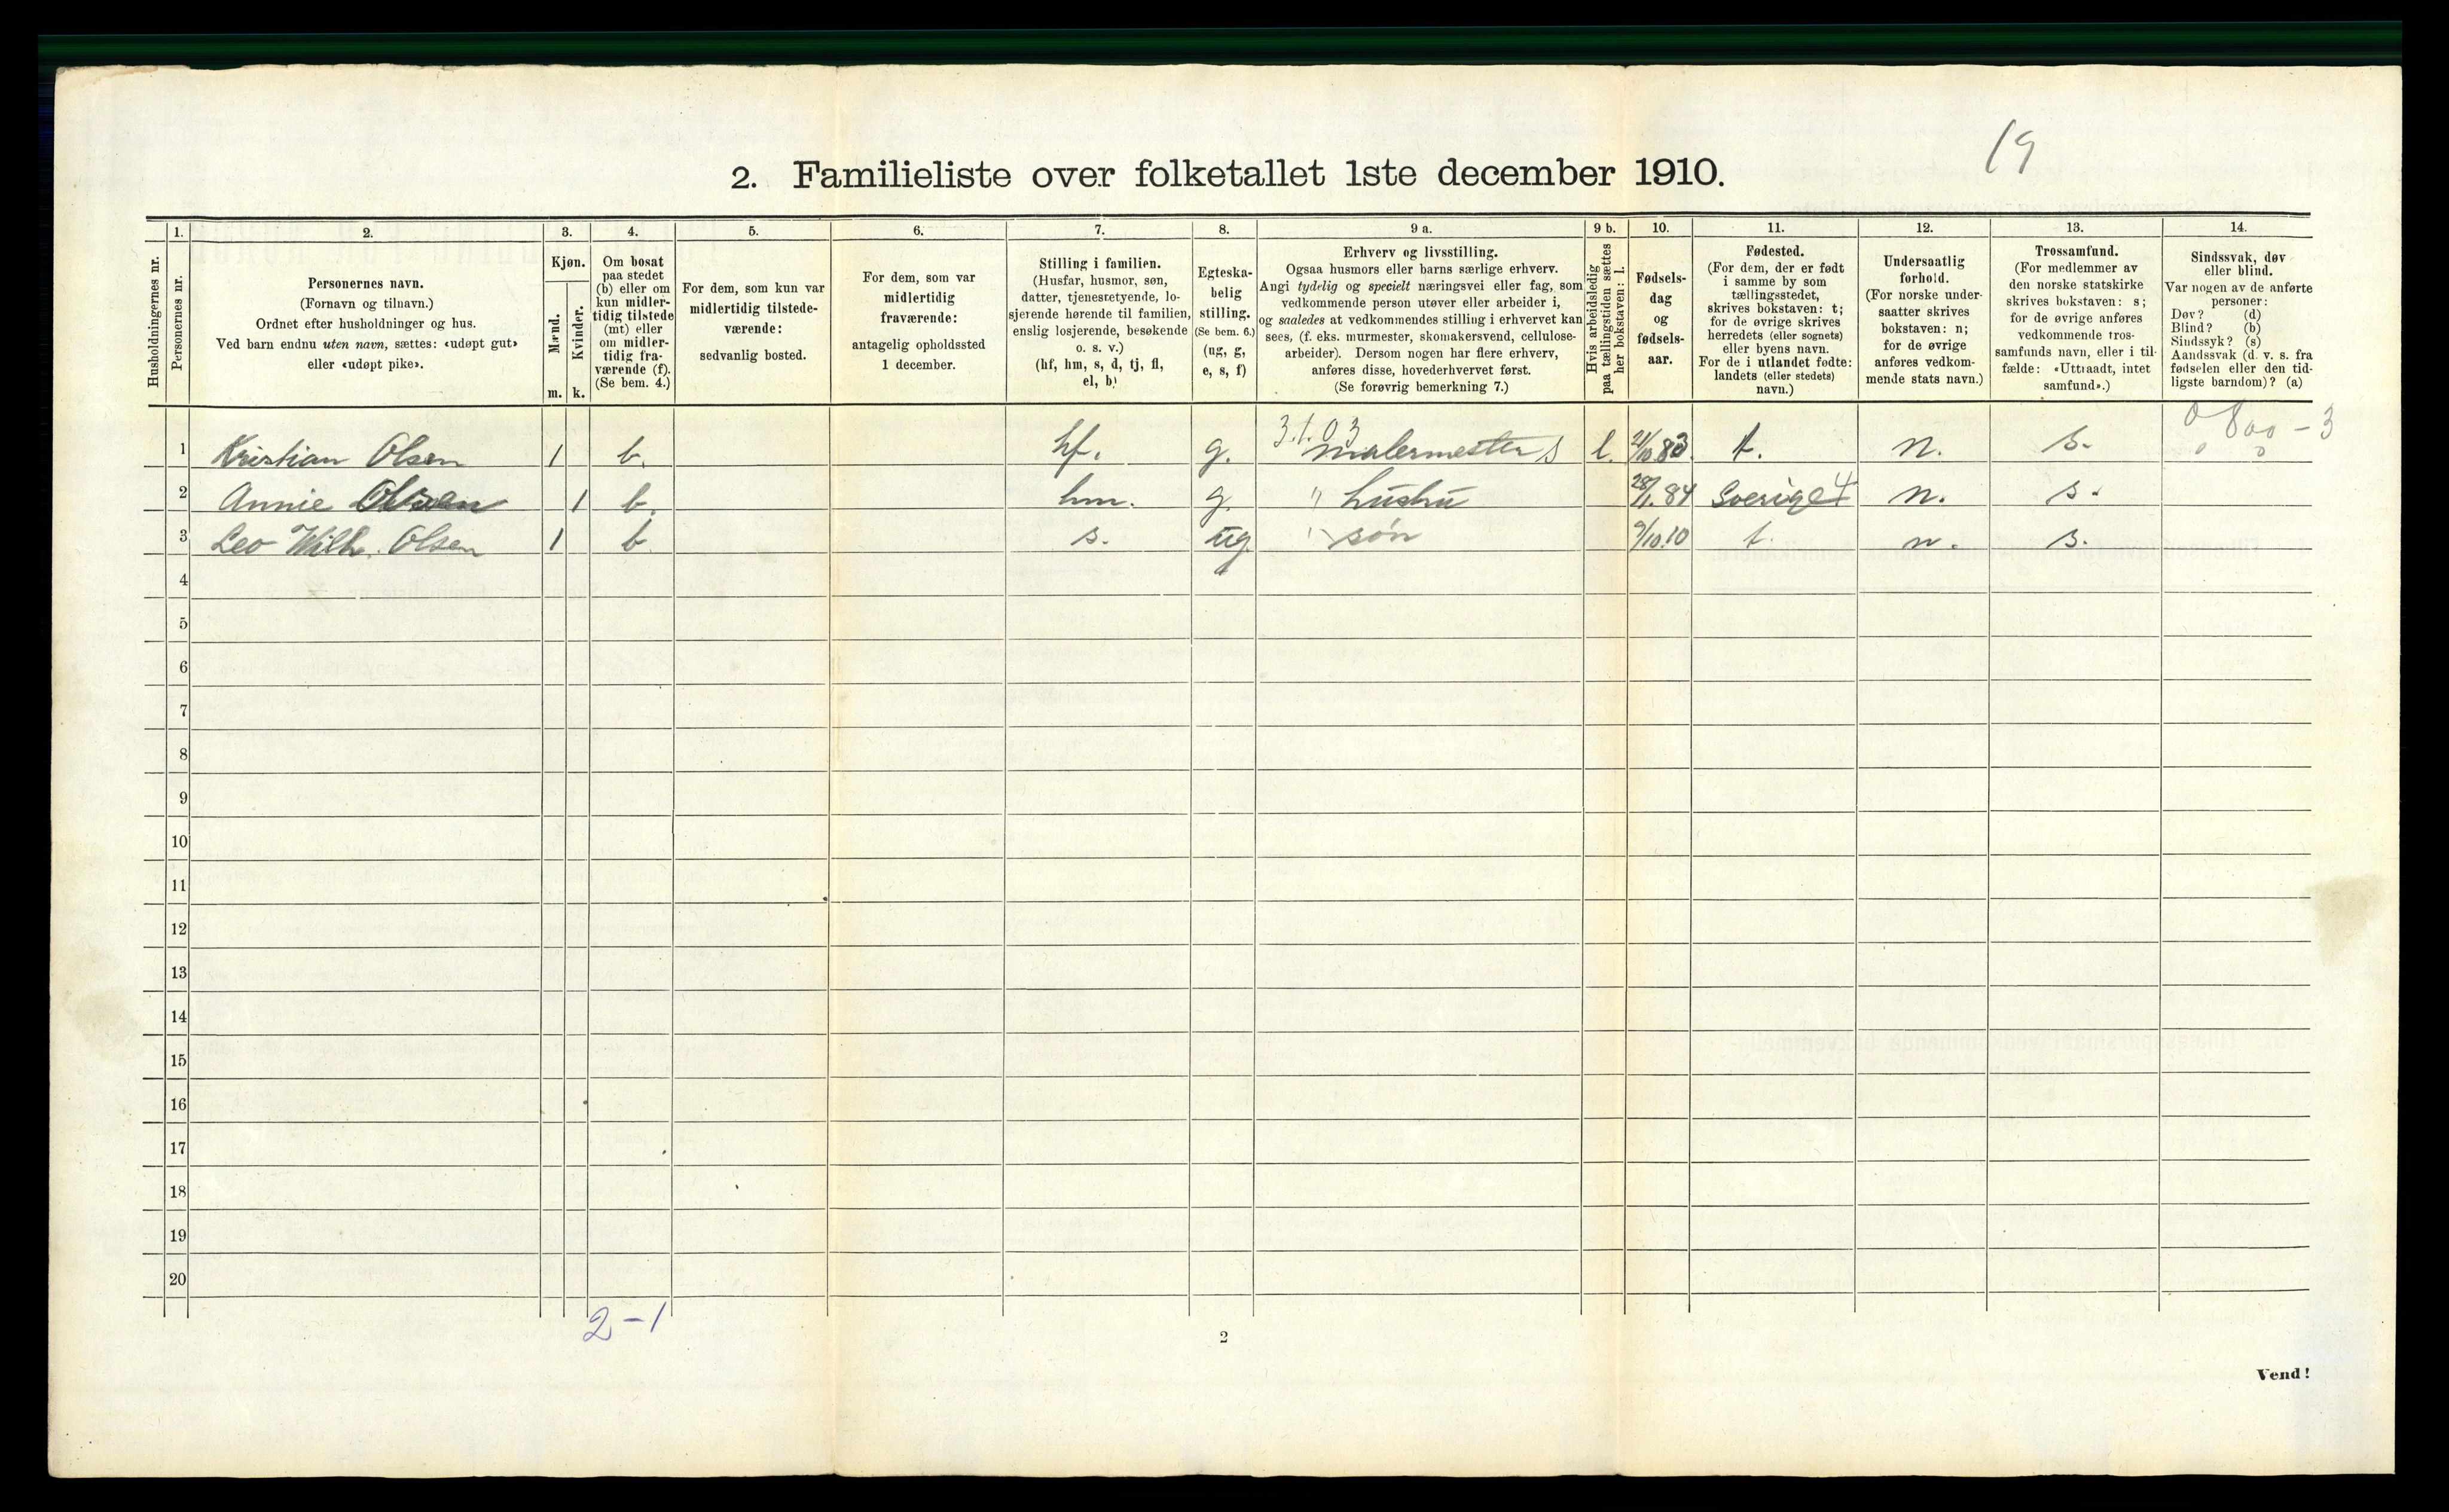 19
2. Familieliste over folketallet 1ste december 1910.
Husholdningernes nr.
1.
Personernes nr.
2.
Personernes navn.
(Fornavn og tilnavn.)
Ordnet efter husholdninger og hus.
Ved barn endnu uten navn, sættes: «udøpt gut»
eller «udøpt pike».
3.
Kjøn.
Mænd.
Kvinder.
m. k.
4.
Om bosat
paa stedet
(b) eller om
kun midler-
tidig tilstede
(mt) eller
om midler-
tidig fra-
værende (f).
(Se bem. 4.)
5.
For dem, som kun var
midlertidig tilstede-
værende:
sedvanlig bosted.
6.
For dem, som var
midlertidig
fraværende:
antagelig opholdssted
1 december.
7.
Stilling i familien.
(Husfar, husmor, søn,
datter, tjenestetyende, lo-
sjerende hørende til familien,
enslig losjerende, besøkende
o. s. v.)
(hf, hm, s, d, tj, fl,
el, b)
8.
Egteska-
belig
stilling.
(Se bem. 6.)
(ug, g,
e, s, f)
9 a.
Erhverv og livsstilling.
Ogsaa husmors eller barns særlige erhverv.
Angi tydelig og specielt næringsvei eller fag, som
vedkommende person utøver eller arbeider i,
og saaledes at vedkommendes stilling i erhvervet kan
sees, (f. eks. murmester, skomakersvend, cellulose-
arbeider). Dersom nogen har flere erhverv,
anføres disse, hovederhvervet først.
(Se forøvrig bemerkning 7.)
9 b.
Hvis arbeidsledig
paa tællingstiden sættes
her bokstaven: l.
10.
Fødsels-
dag
og
fødsels-
aar.
11.
Fødested.
(For dem, der er født
i samme by som
tællingsstedet,
skrives bokstaven: t;
for de øvrige skrives
herredets (eller sognets)
eller byens navn.
For de i utlandet fødte:
landets (eller stedets)
navn.)
12.
Undersaatlig
forhold.
(For norske under-
saatter skrives
bokstaven: n;
for de øvrige
anføres vedkom-
mende stats navn.)
13.
Trossamfund.
(For medlemmer av
den norske statskirke
skrives bokstaven: s;
for de øvrige anføres
vedkommende tros-
samfunds navn, eller i til-
fælde: «Uttraadt, intet
samfund».)
14.
Sindssvak, døv
eller blind.
Var nogen av de anførte
personer:
Døv? (d)
Blind? (b)
Sindssyk? (s)
Aandssvak (d. v. s. fra
fødselen eller den tid-
ligste barndom)? (a)
3.1.03
1 Kristian Olsen 1 b. hf. g. malermester s l. 21/10 83. t. n. s.
2 Annie Olsen 1 b. hm. g. " hustru 28/1. 84 Sverige 4 n. s.
3 Leo Wilh. Olsen 1 b s. ug. " søn 9/10.10 t. n. s.
4
5
6
7
8
9
10
11
12
13
14
15
16
17
18
19
20
2-1
2
Vend!